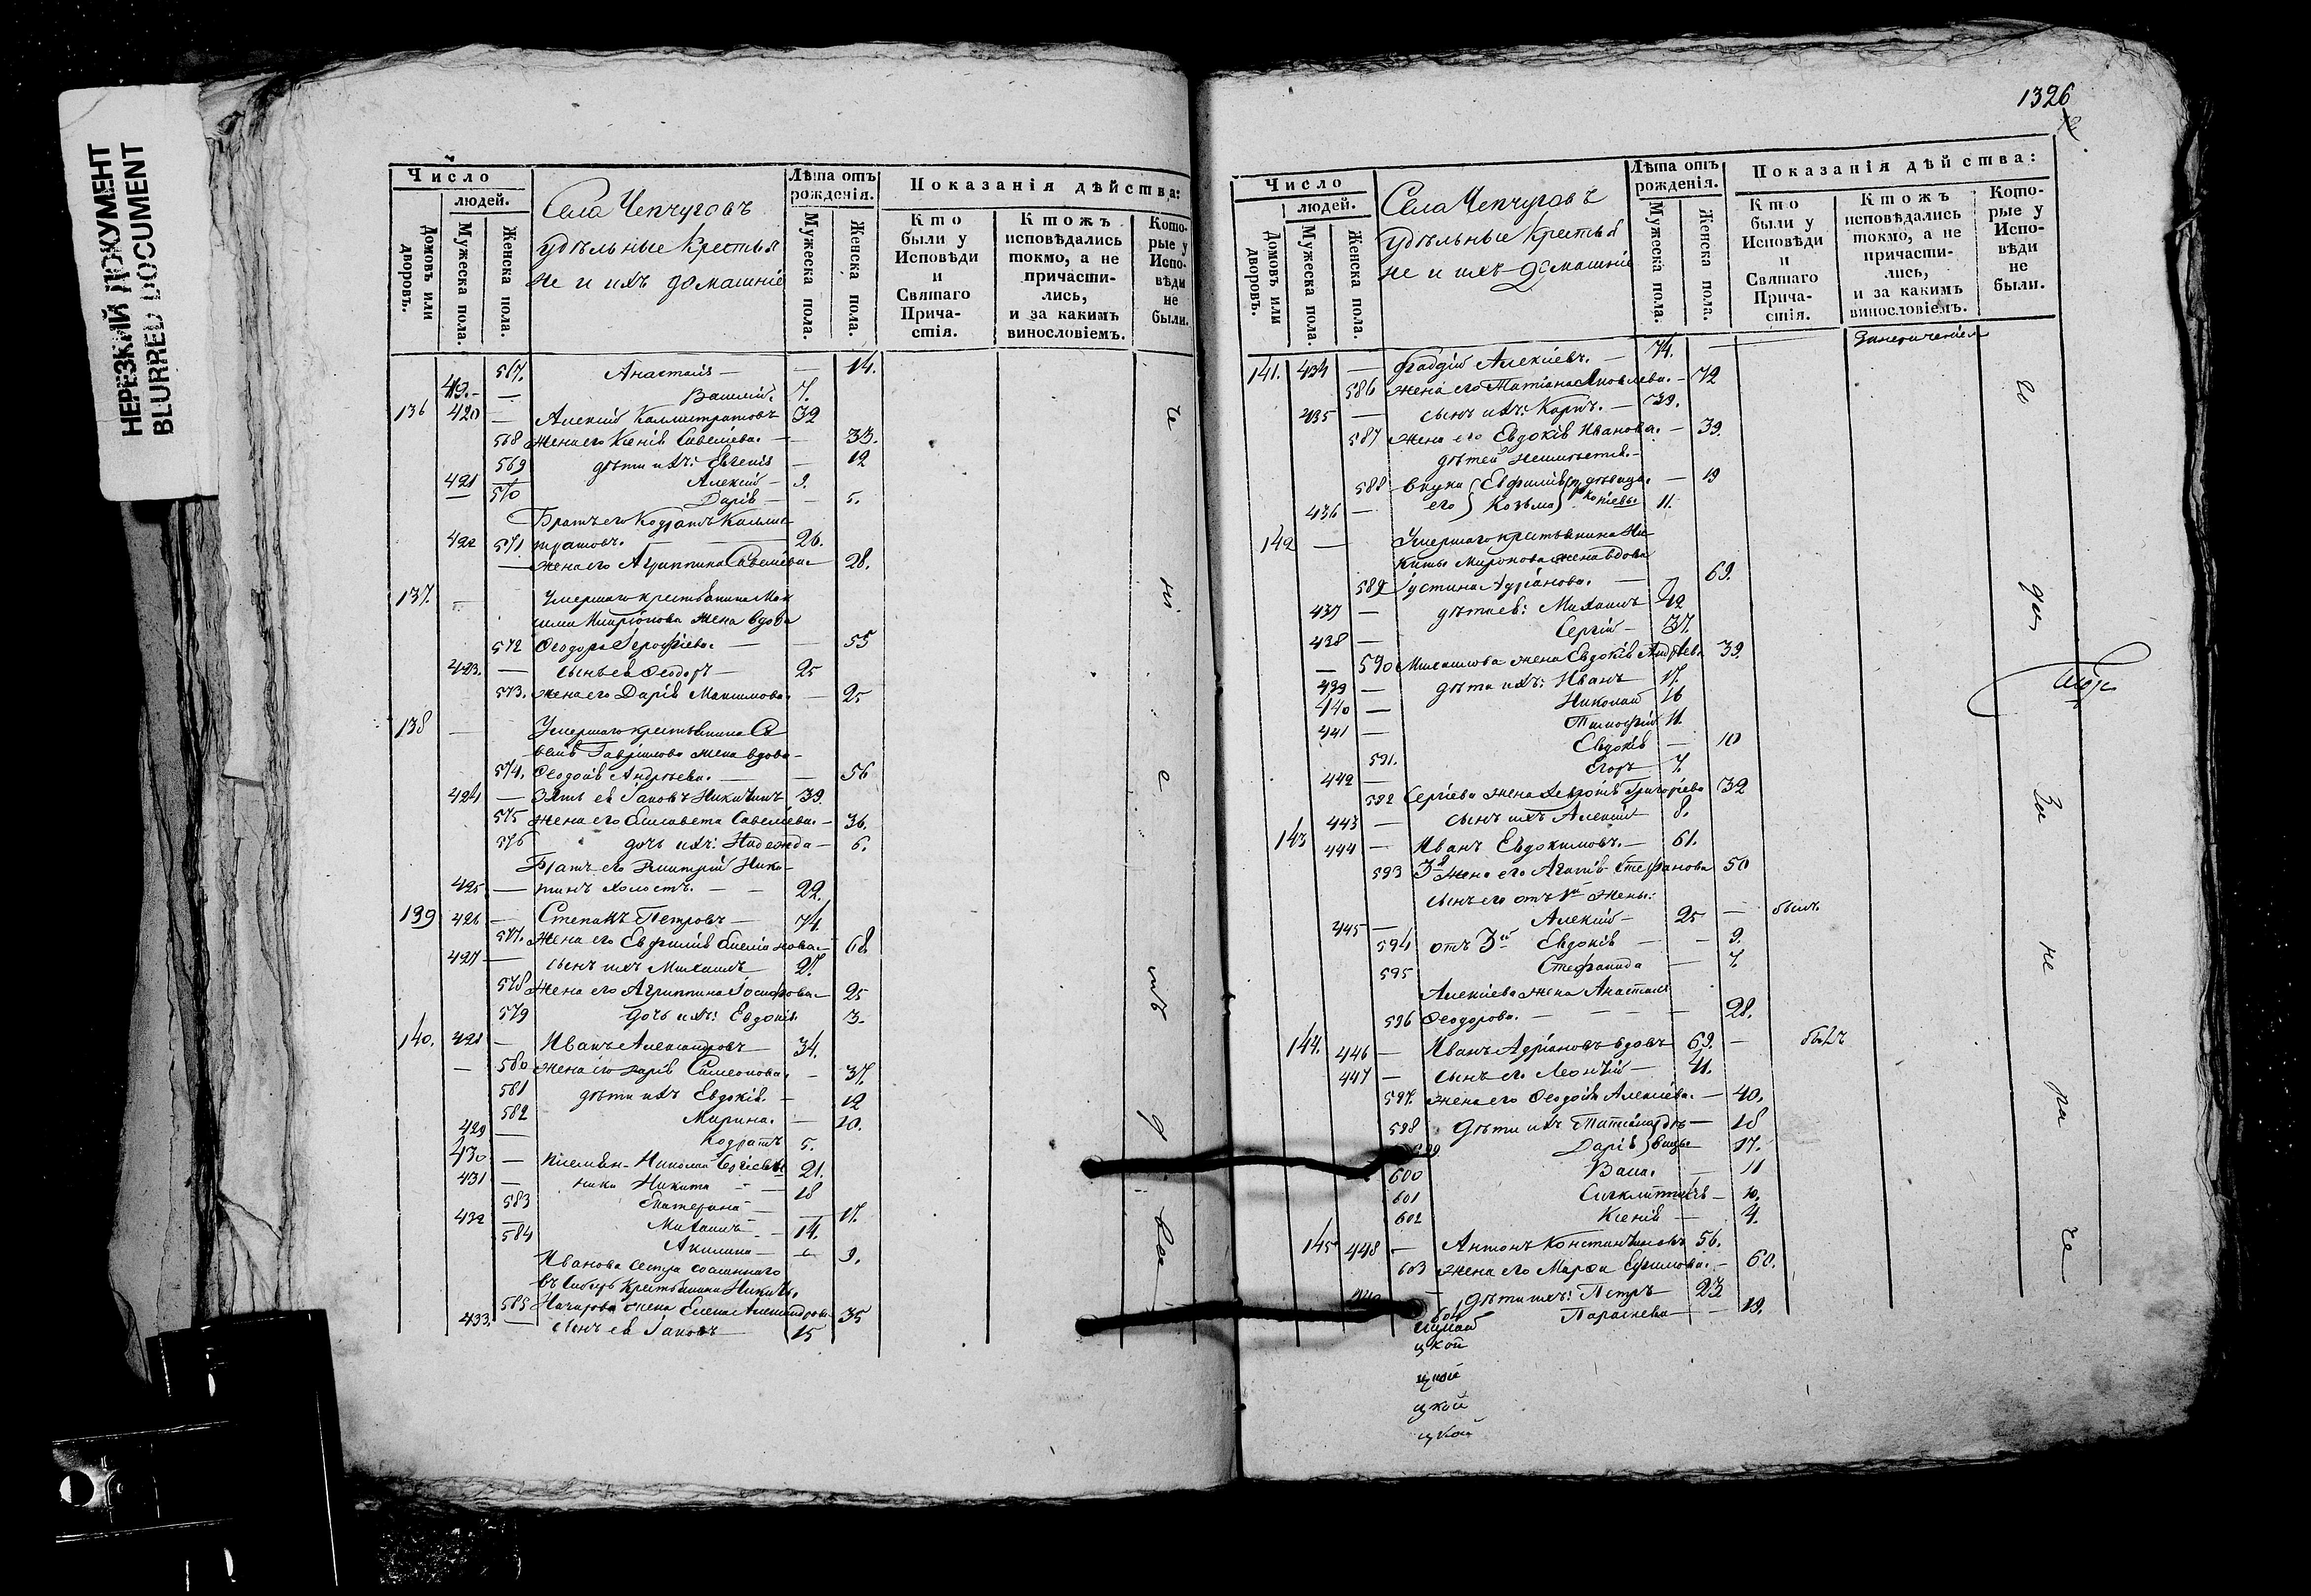 НЕРЕЗКИЙ ДОКУМЕНТ
BLURRED DOCUMENT
Число
людей.
Домовъ или дворовъ.
Мужеска пола.
Женска пола.
Села Чепчуговъ
удѣльные крестья
не и ихъ домашніе
Лѣта отъ рожденія.
Мужеска пола.
Женска пола.
Показанія дѣйства:
Кто были у Исповѣди и Святаго Причастія.
Ктожъ исповѣдались токмо, а не причастились, и за какимъ винословіемъ.
Которые у Исповѣди не были.
567. Анастасія — — 14.
419. — Василій. 7.
136 420 — Алексій Каллистратовъ 39
568 Жена его Ксенія Савеліева. — 33.
569 дѣти ихъ: Евгенія — 12
421 — Алексій — 9.
570 Дарія — — 5.
Братъ его Кодратъ Калли
422 571 стратовъ. — 26.
— жена его Агриппина Савеліева 28.
137. — Умершаго крестьянина Мак
сима Иларіонова жена вдова
572 Ѳеодора Іероѳіева. — — 55
423. — сынъ ея Ѳеодоръ — 25
573. жена его Дарія Максимова. — 25
138 — Умершаго крестьянина Са
велія Гавріилова жена вдова
574. Ѳеодосія Андреева. — — 56
424 — Зять ея Іаковъ Никитинъ 39.
575 Жена его Елисавета Савеліева — 36.
576 дочь ихъ: Надежда — 6.
Братъ его Димитрій Ники
425 — тинъ холостъ. — — 22.
139 426 — Степанъ Петровъ — 74.
577. Жена его Евфимія — 68.
427 — сынъ ихъ Михаилъ 27.
578 Жена его Агриппина Іосифова — 25
579 дочь ихъ: Евдокія. 3.
140. 428 — Иванъ Александровъ — 34.
— 580 жена его Дарія Симеонова. — 37.
581 дѣти ихъ Евдокія. — 12
582 Марина. — 10.
429 — Кодратъ 5.
430 — племян- Николай Сергіевы 21.
431 — ники Никита — — 18
583 Екатерина — — 17.
432 — Михаилъ — 14.
584 Акилина — — 9.
Иванова сестра сосланнаго
въ Сибирь крестьянина Никиты
585 Назарова жена Елена Александрова 35
433. — сынъ ея Іаковъ — 15
1326
Число
людей.
Домовъ или дворовъ.
Мужеска пола.
Женска пола.
Села Чепчуговъ
удѣльные крестья
не и ихъ домашніе
Лѣта отъ рожденія.
Мужеска пола.
Женска пола.
Показанія дѣйства:
Кто были у Исповѣди и Святаго Причастія.
Ктожъ исповѣдались токмо, а не причастились, и за какимъ винословіемъ.
Которые у Исповѣди не были.
141. 434 — Алексіевъ. — 74.
586 жена его Татіана Яковлева. — 72
435 — сынъ ихъ: Карпъ. — 39.
587 жена его Евдокія Иванова. — 39.
дѣтей неимѣетъ.
588 внуки Евфимія дѣвица — 19
436 — его Козьма 11.
142 — Умершаго крестьянина Ни
киты Миронова жена вдова
589 Іустина Адріанова. — 69.
437 — дѣти ея: Михаилъ 42
438 — Сергій — 37.
— 590 Михаилова жена Евдокія Андреева 39.
439 — дѣти ихъ: Иванъ 17.
440 — Николай 16
441 — Тимофей 11
591. Евдокія — 10
442 — Егоръ 7.
592 Сергіева жена Григоріева 32
443 — сынъ ихъ Алексій 8.
143 444 — Иванъ Евдокимовъ. — 61.
593 3я жена его Агапія Стефанова 50
сынъ его отъ 1й жены:
445 — Алексій — 25 — былъ.
594 отъ 3й Евдокія — — 9.
595 Стефанида — 7.
Алексіева жена Анастасія
596 Ѳеодорова. — — — 28.
144. 446 — Иванъ Адріановъ вдовъ 69. — былъ
447 — сынъ его Леонтій — 41.
597. жена его Ѳеодосія Алексіева. — 40.
598 дѣти ихъ Татіана дѣ — 18
599 Дарія вицы 17.
600 Васса. — 11
601 Синклитикія — 10.
602 Ксенія — 4.
145 448 — Антонъ Константиновъ 56.
603 жена его Марѳа Ефимова. — 60.
449 — дѣти ихъ: Петръ 23
604 Параскева — — 19.
цкой
цкой
цкой
цкой